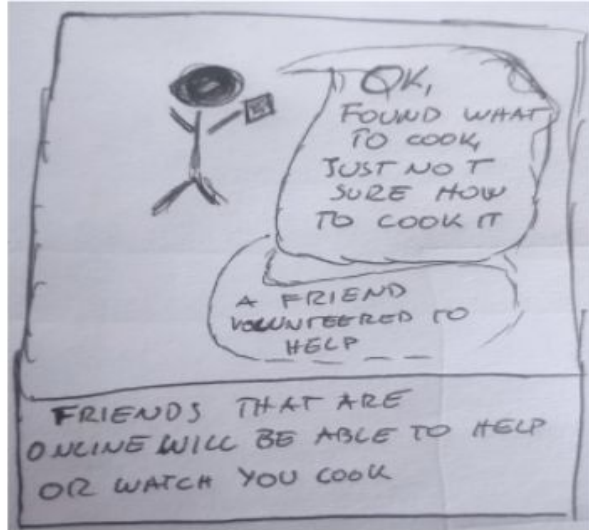 OK,
FOUND WHAT
TO COOK,
JUST NOT
SURE HOW
TO COOK IT
A FRIEND
VOLUNTEERED TO
HELP
FRIENDS THAT ARE
ONLINE WILL BE ABLE TO HELP
OR WATCH YOU COOK